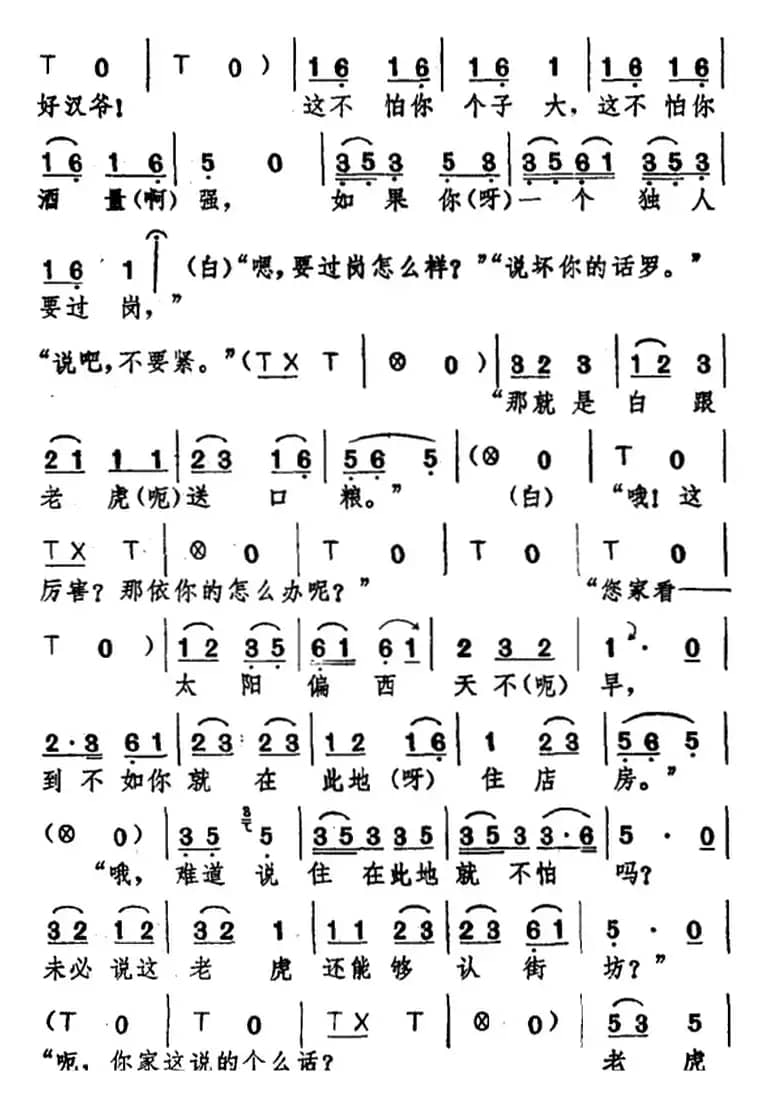 T 0 | T 0 ) | 1 6 1 6 | 1 6 1 | 1 6 1 6 |
好汉爷! 这不 怕你 个子 大, 这不 怕你
1 6 1 6 | 5 0 | 3 5 3 5 3 | 3 5 6 1 3 5 3 |
酒 量(啊)强, 如 果 你(呀)一 个 独 人
1 6 1 | (白)“嗯,要过岗怎么样?”“说坏你的话罗。”
要过 岗,”
“说吧,不要紧。”(T X T | ⊗ 0 ) | 3 2 3 | 1 2 3 |
“那就 是 白 跟
2 1 1 1 | 2 3 1 6 | 5 6 5 | (⊗ 0 | T 0 |
老 虎(呃)送 口 粮。” (白) “哦! 这
T X T | ⊗ 0 | T 0 | T 0 | T 0 |
厉害? 那依你的怎么办呢?” “您家看——
T 0 ) | 1 2 3 5 | 6 1 6 1 | 2 3 2 | 1 · 0 |
太 阳 偏 西 天 不(呃) 早,
2 · 3 6 1 | 2 3 2 3 | 1 2 1 6 | 1 2 3 | 5 6 5 |
到 不 如你 就 在 此地(呀) 住 店 房。”
(⊗ 0 ) | 3 5 5 | 3 5 3 3 5 | 3 5 3 3 · 6 | 5 · 0 |
“哦, 难道 说 住 在此地 就 不怕 吗?
3 2 1 2 | 3 2 1 | 1 1 2 3 | 2 3 6 1 | 5 · 0 |
未必 说这 老 虎 还能 够 认 街 坊?”
(T 0 | T 0 | T X T | ⊗ 0 ) | 5 3 5
“呃, 你家这说的个么话? 老 虎